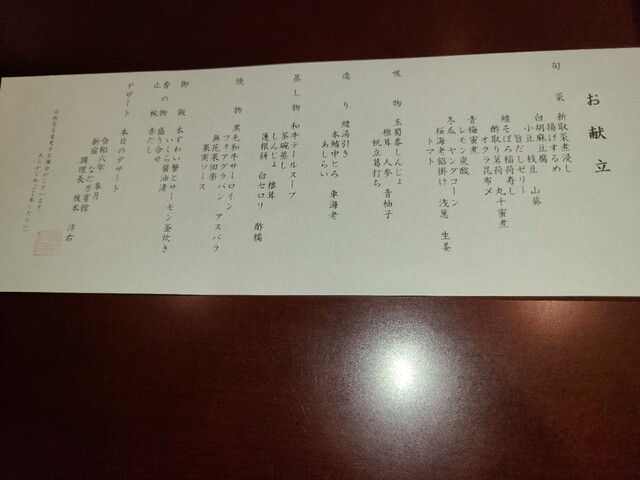 お献立
旬菜 新取菜煮浸し
揚げするめ
白胡麻豆腐 山葵
小豆 枝豆
旨だしゼリー
鰻そぼろ稲荷寿し
酢取り茗荷 丸十蜜煮
オクラ昆布〆
青梅蜜煮
レモン炭酸
冬瓜 ヤングコーン
桜海老餡掛け 浅葱 生姜
トマト
吸物 玉蜀黍しんじょ
椎茸 人参 青柚子
帆立葛打ち
造り 鱧湯引き
本鮪中とろ 車海老
あしらい
蒸し物 和牛テールスープ
茶碗蒸し
しんじょ 椎茸
蓮根餅 白セロリ 酢橘
焼物 黒毛和牛サーロイン
フォアグラパン アスパラ
無花果田楽
果実ソース
御飯 本ずわい蟹とサーモン釜炊き
いくら醤油漬
香の物 盛り合せ
止椀 赤だし
デザート 本日のデザート
令和六年 葉月
新宿 なだ万賓館
調理長 榎本 洋右